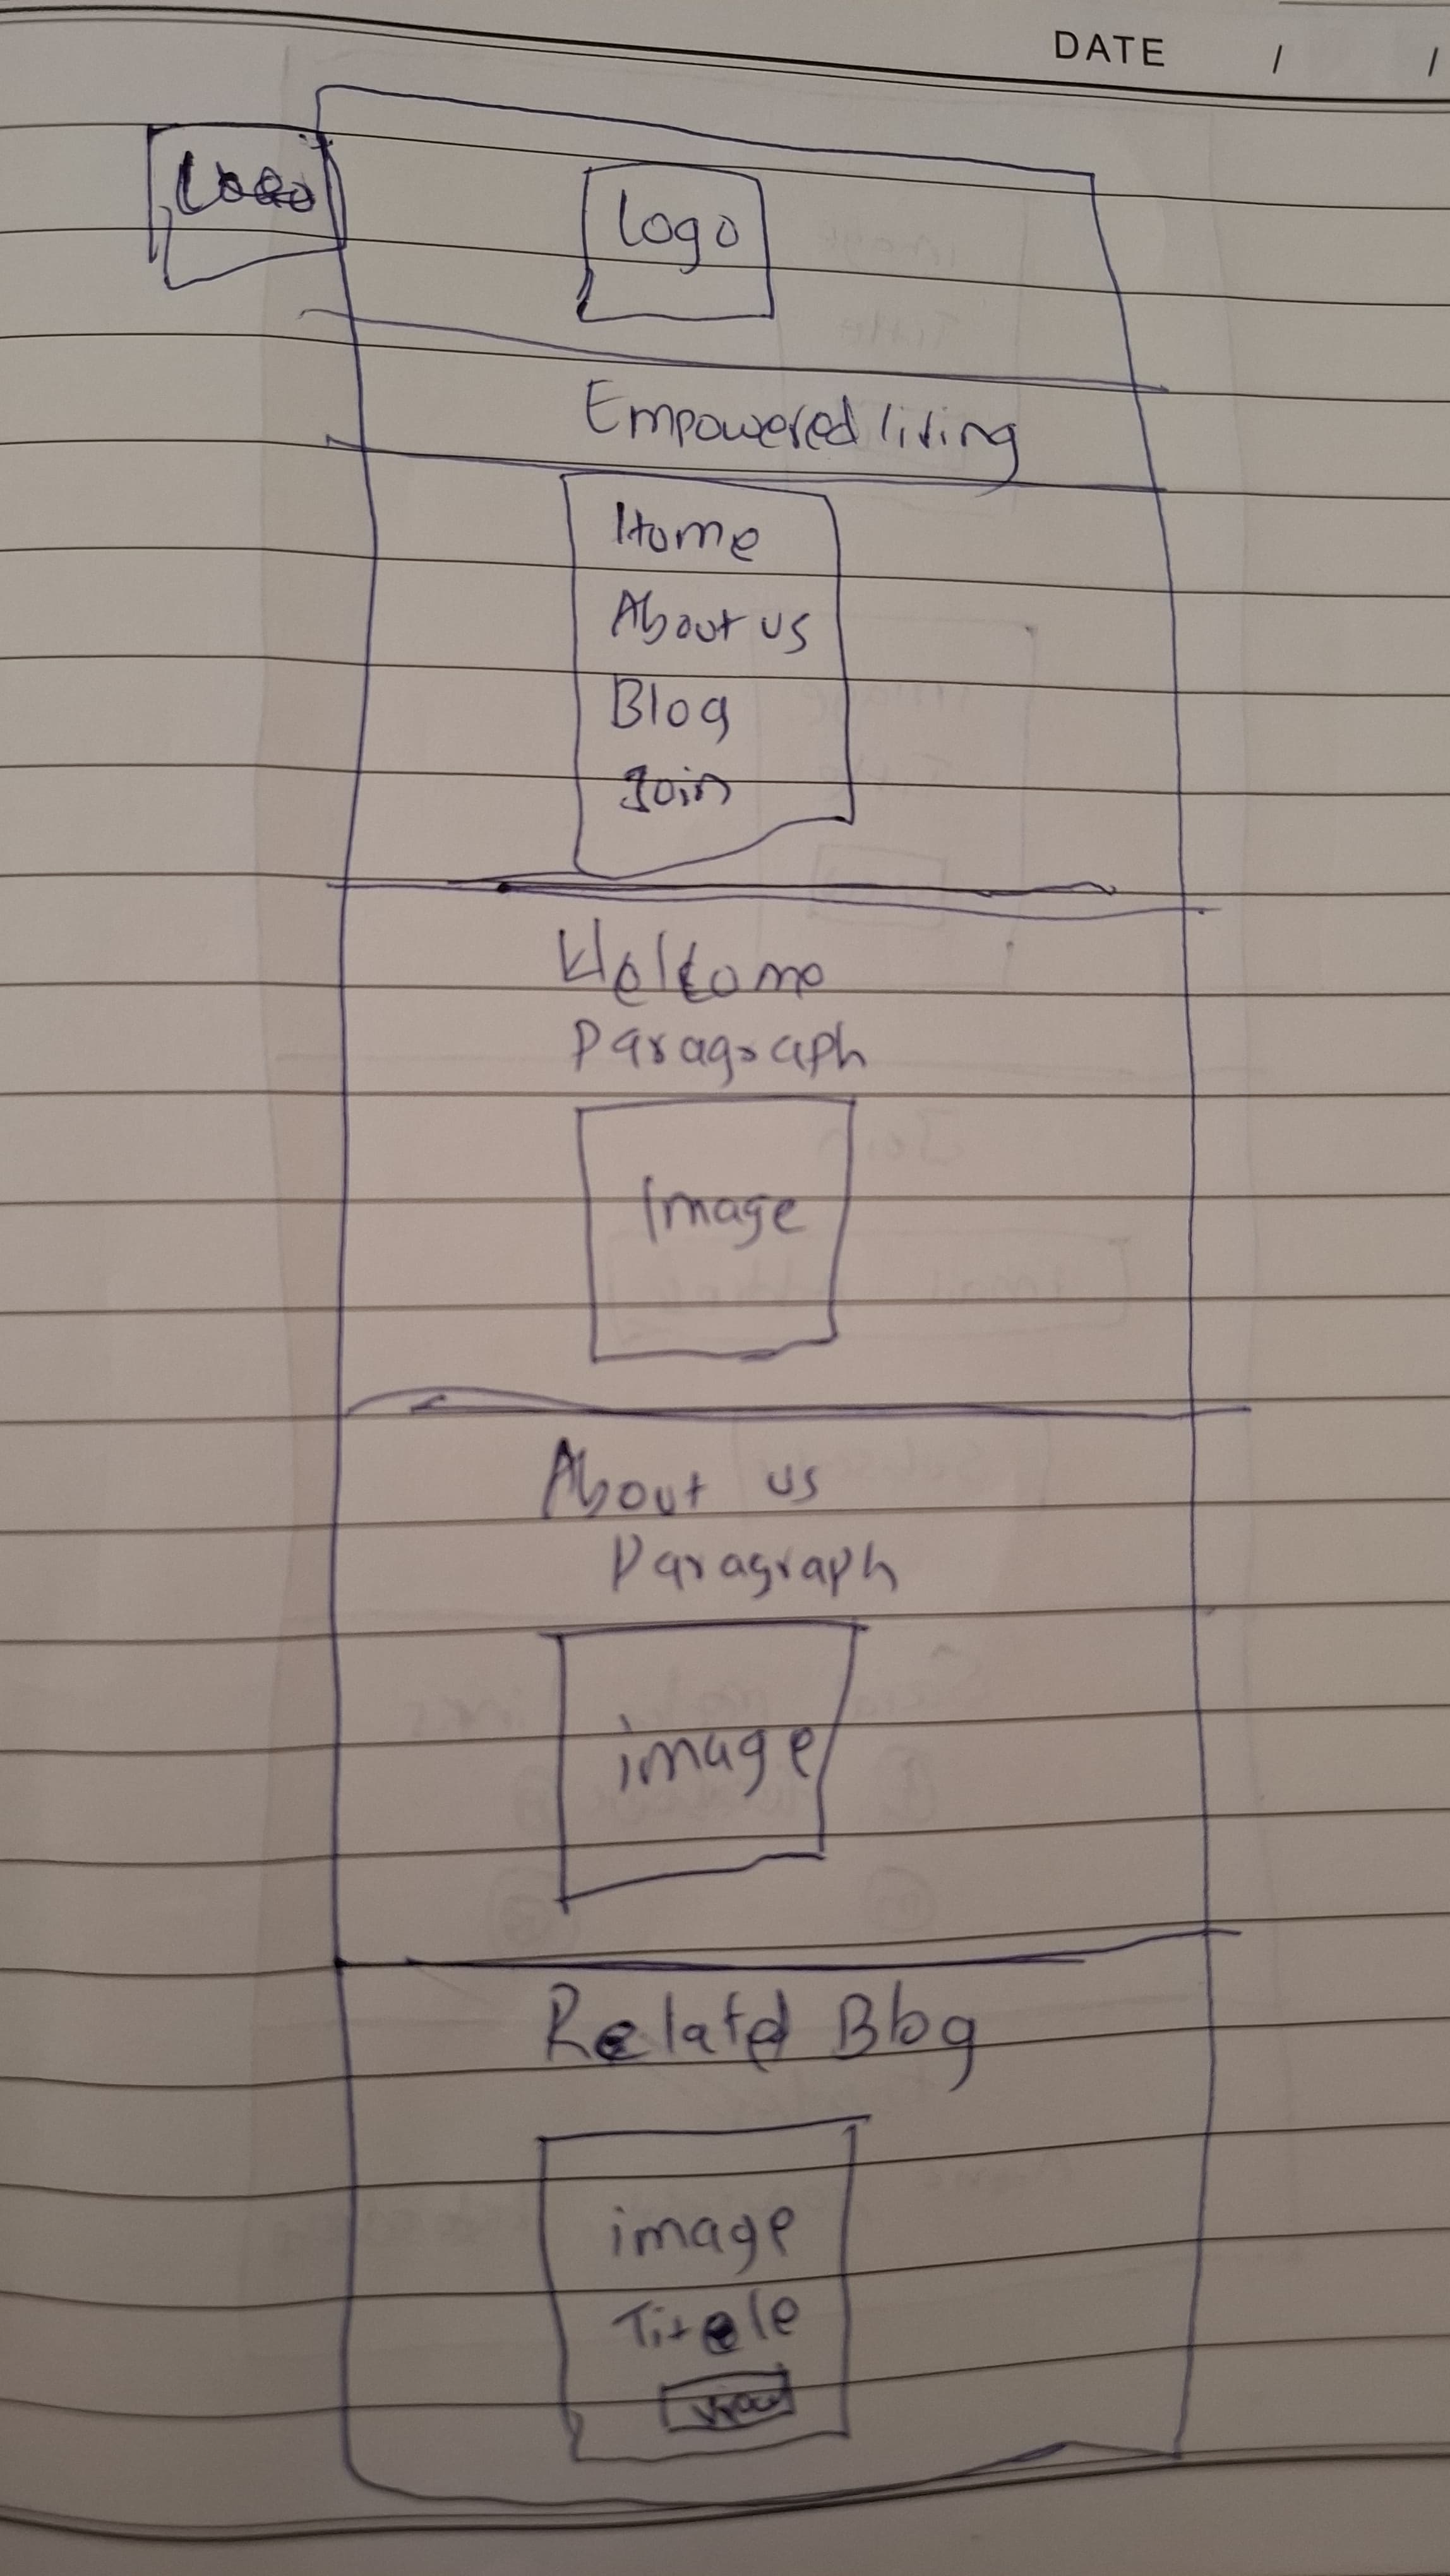 DATE / /
Logo
Empowered living
Home
About us
Blog
Join
Welcome
Paragraph
Image
About us
Paragraph
image
Related Blog
image
Title
View